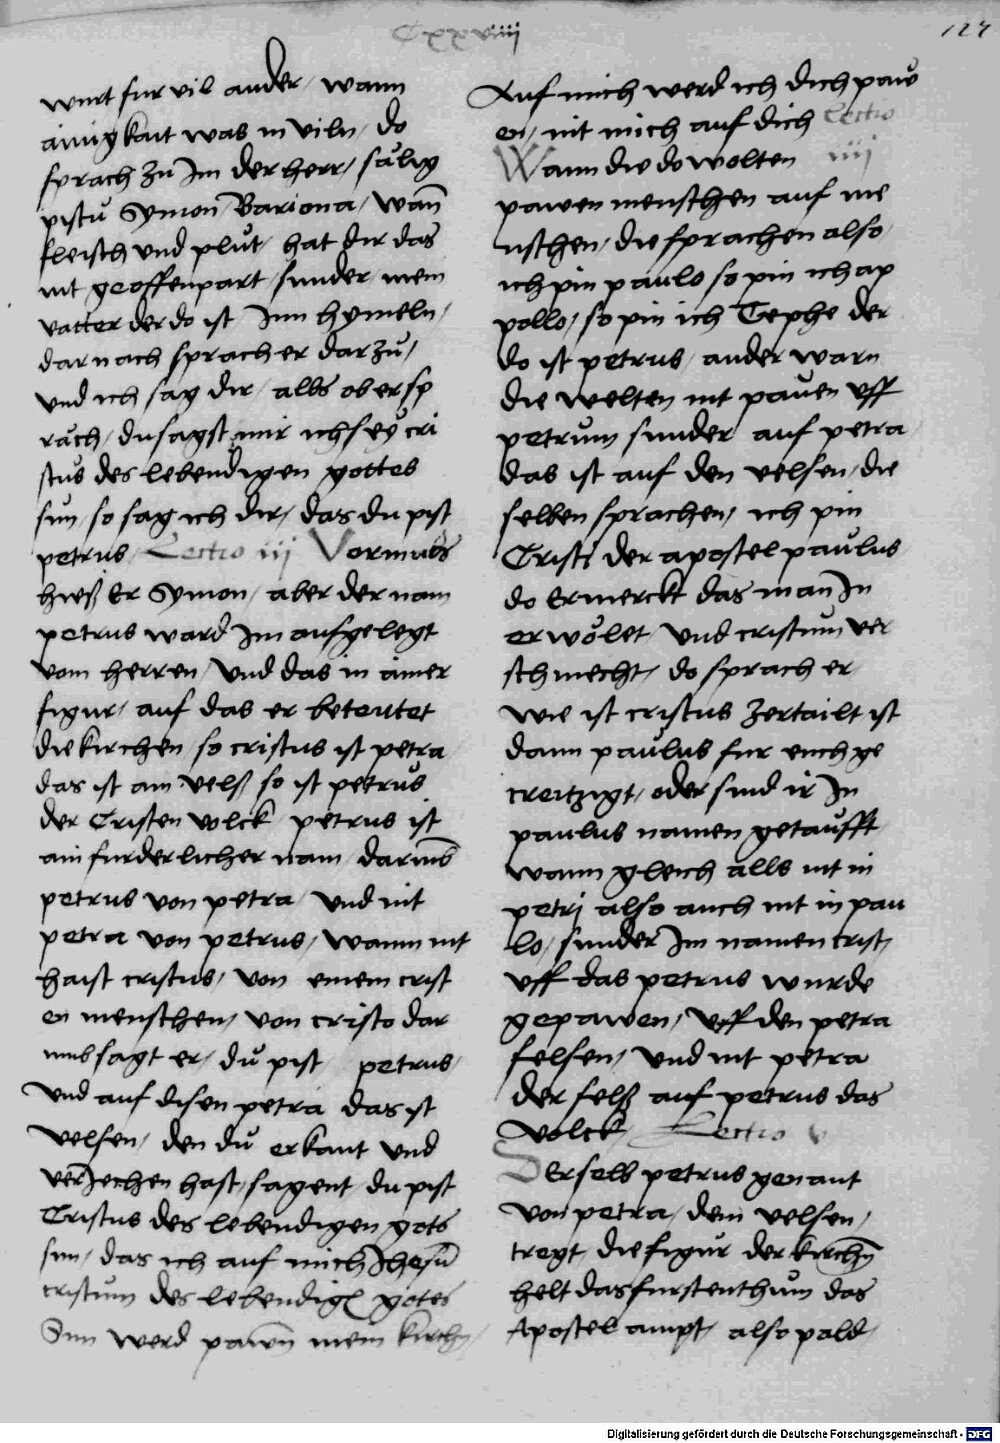 Cxxviiij
127
wurt fur vil ander / wann
ainigkait was in viln / do
sprach zu Im der herr / sälig
pistu Symon / Bariona / wañ
fleisch und plut / hat dir das
nit geoffenpart / sunder mein
vatter der do ist Inn hymeln /
darnach sprach er darzu /
und ich sag dir / alls ob er sp
räch / du sagst mir ich sey cri
stus des lebendigen gottes
sun / so sag ich dir / das du pist
petrus / Lectio iij Vormals
hieß Er Symon / aber der nam
petrus ward Im aufgelegt
vom herren / und das in ainer
figur / auf das er beteutet
die kirchen / so cristus ist petra
das ist ain velß so ist petrus
der Cristen volck petrus ist
ain furderlicher nam darumb
petrus von petra / und nit
petra von petrus / wann nit
haist cristus / von einem crist
en menschen / von cristo dar
umb sagt er / du pist petrus /
und auf disen petra das ist
velsen / den du erkant und
verJechen hast / sagent / du pist
Cristus des lebendigen gots
sun / das ich auf mich Jhesu
cristum des lebendigen gotes
Sun werd pawen mein kirchn /
Auf mich werd ich dich paw
en / nit mich auf dich Lectio
Wann die do wolten iiij
pawen menschen auf me
nschen / die sprachen also
ich pin paulo so pin ich ap
pollo / so pin ich Cephe der
do ist petrus / ander warn
die welten nit pauen uff
petrum sunder auf petra
das ist auf den velsen / die
selben sprachen / ich pin
Cristi der apostel paulus
do Ermerckt das man In
erwölet / und cristum ver
schmecht / do sprach er /
wie ist cristus zertailt ist
dann paulus fur euch ge
creitzigt / oder sind ir In
paulus namen getaufft
wann gleich alls nit in
petri also auch nit in pau
lo / sunder Im namen crist /
uff das petrus wurde
gepawen / uff den petra
felsen / und nit petra
der felß auf petrus das
volck / Lectio v
Derselb petrus genant
von petra / dem velsen /
tregt die figur der kirchñ
helt das furstenthum das
Apostel ampt / also pald /
Digitalisierung gefördert durch die Deutsche Forschungsgemeinschaft - DFG